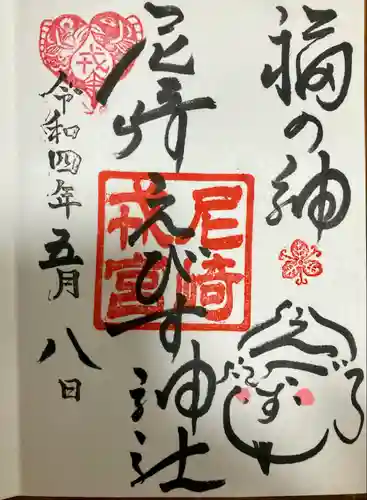 福の神
尼崎えびす神社
令和四年五月八日
尼崎
戎宮
戎
えびす